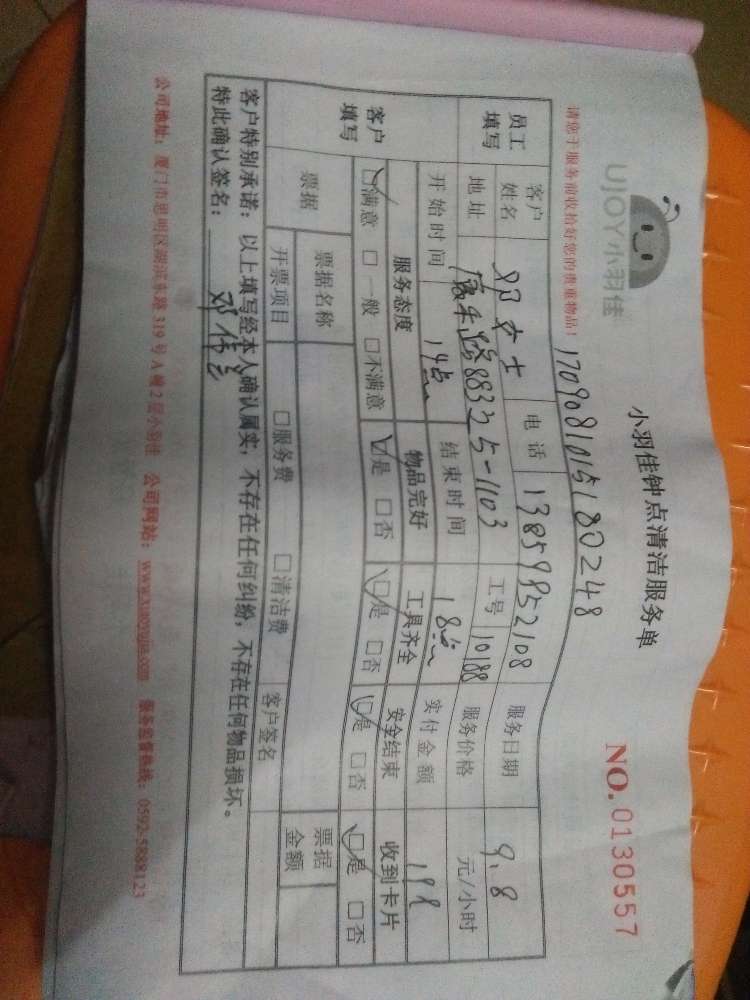 UJOY小羽佳
小羽佳钟点清洁服务单
NO.0130557
请您于服务前收拾好您的贵重物品!
1709081015180248
员工填写
客户姓名 邓女士 电话 13859952108 服务日期 9.8
地址 康乐路88335-1103 工号 10188 服务价格 元/小时
开始时间 14点 结束时间 18点 实付金额
客户填写
服务态度 物品完好 工具齐全 安全结束 收到卡片
☑满意 □一般 □不满意 ☑是 □否 ☑是 □否 ☑是 □否 ☑是 □否
票据 票据名称 票据金额
开票项目 □服务费 □清洁费 客户签名
客户特别承诺:以上填写经本人确认属实,不存在任何纠纷,不存在任何物品损坏。
特此确认签名:
公司地址:厦门市思明区湖滨东路319号A幢2层小羽佳 公司网站:www.xiaoyujia.com 服务监督热线:0592-5888123